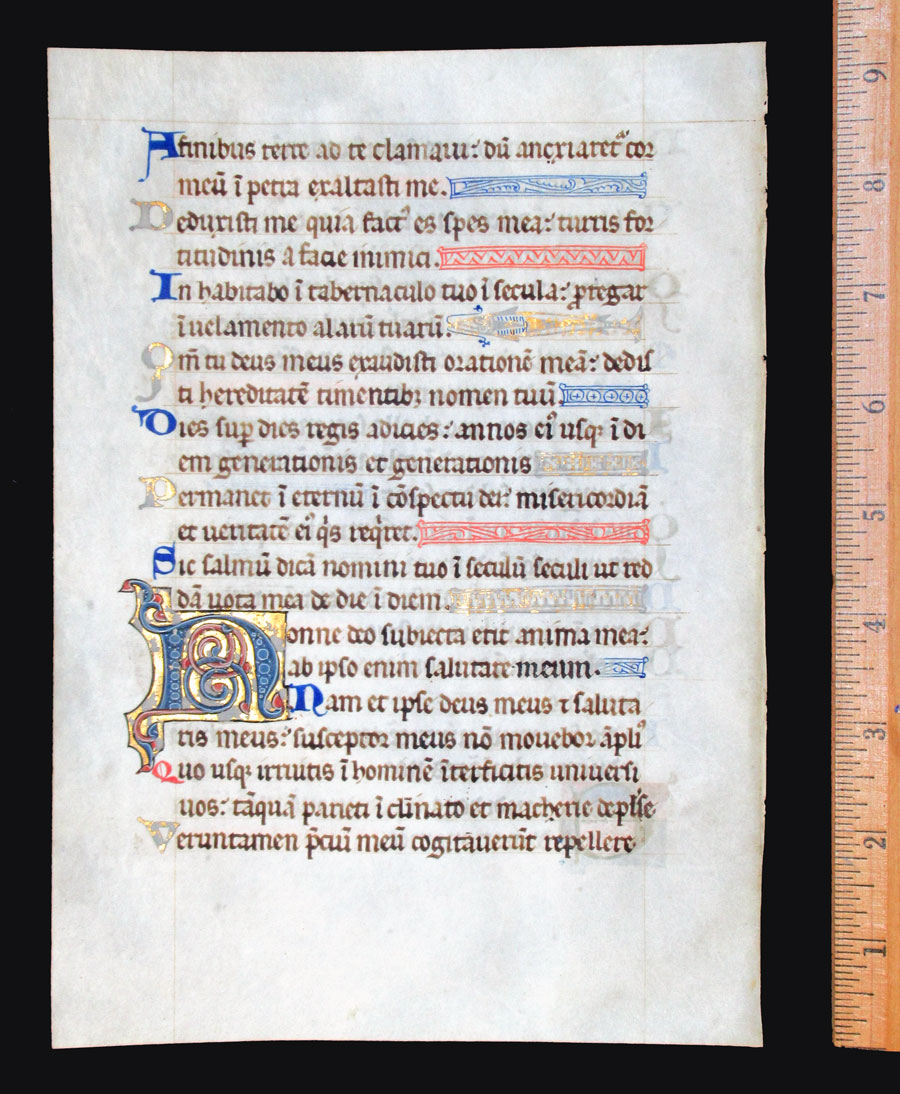 A finibus terre ad te clamaui: dū anxriaretᵃ cor
meū ī petra exaltasti me.
Deduxisti me quia fact᷒ es spes mea: turris for
titudinis a facie inimici.
In habitabo ī tabernaculo tuo ī secula: ꝓtegar
ī uelamento alarū tuarū.
Qm̄ tu deus meus exaudisti orationē meā: dedis
ti hereditatē timentibꝫ nomen tuū.
Dies suꝑ dies regis adicies: annos ei᷒ usqꝫ ī di
em generationis et generationis
Permanet ī eternū ī cōspectu dei: misericordiā
et ueritatē ei᷒ q̇s reqͥret.
Sic salmū dicā nomini tuo ī seculū seculi ut red
dā uota mea de die ī diem.
Nonne deo subiecta erit anima mea:
ab ipso enim salutare meum.
Nam et ipse deus meus ⁊ saluta
ris meus: susceptor meus nō mouebor āpli᷒
Quo usqꝫ irruitis ī hominē īterficitis uniuersi
uos: tāquā parieti ī clinato et macherie depulse
Veruntamen p̄ciū meū cogitauerūt repellere
9
8
7
6
5
4
3
2
1